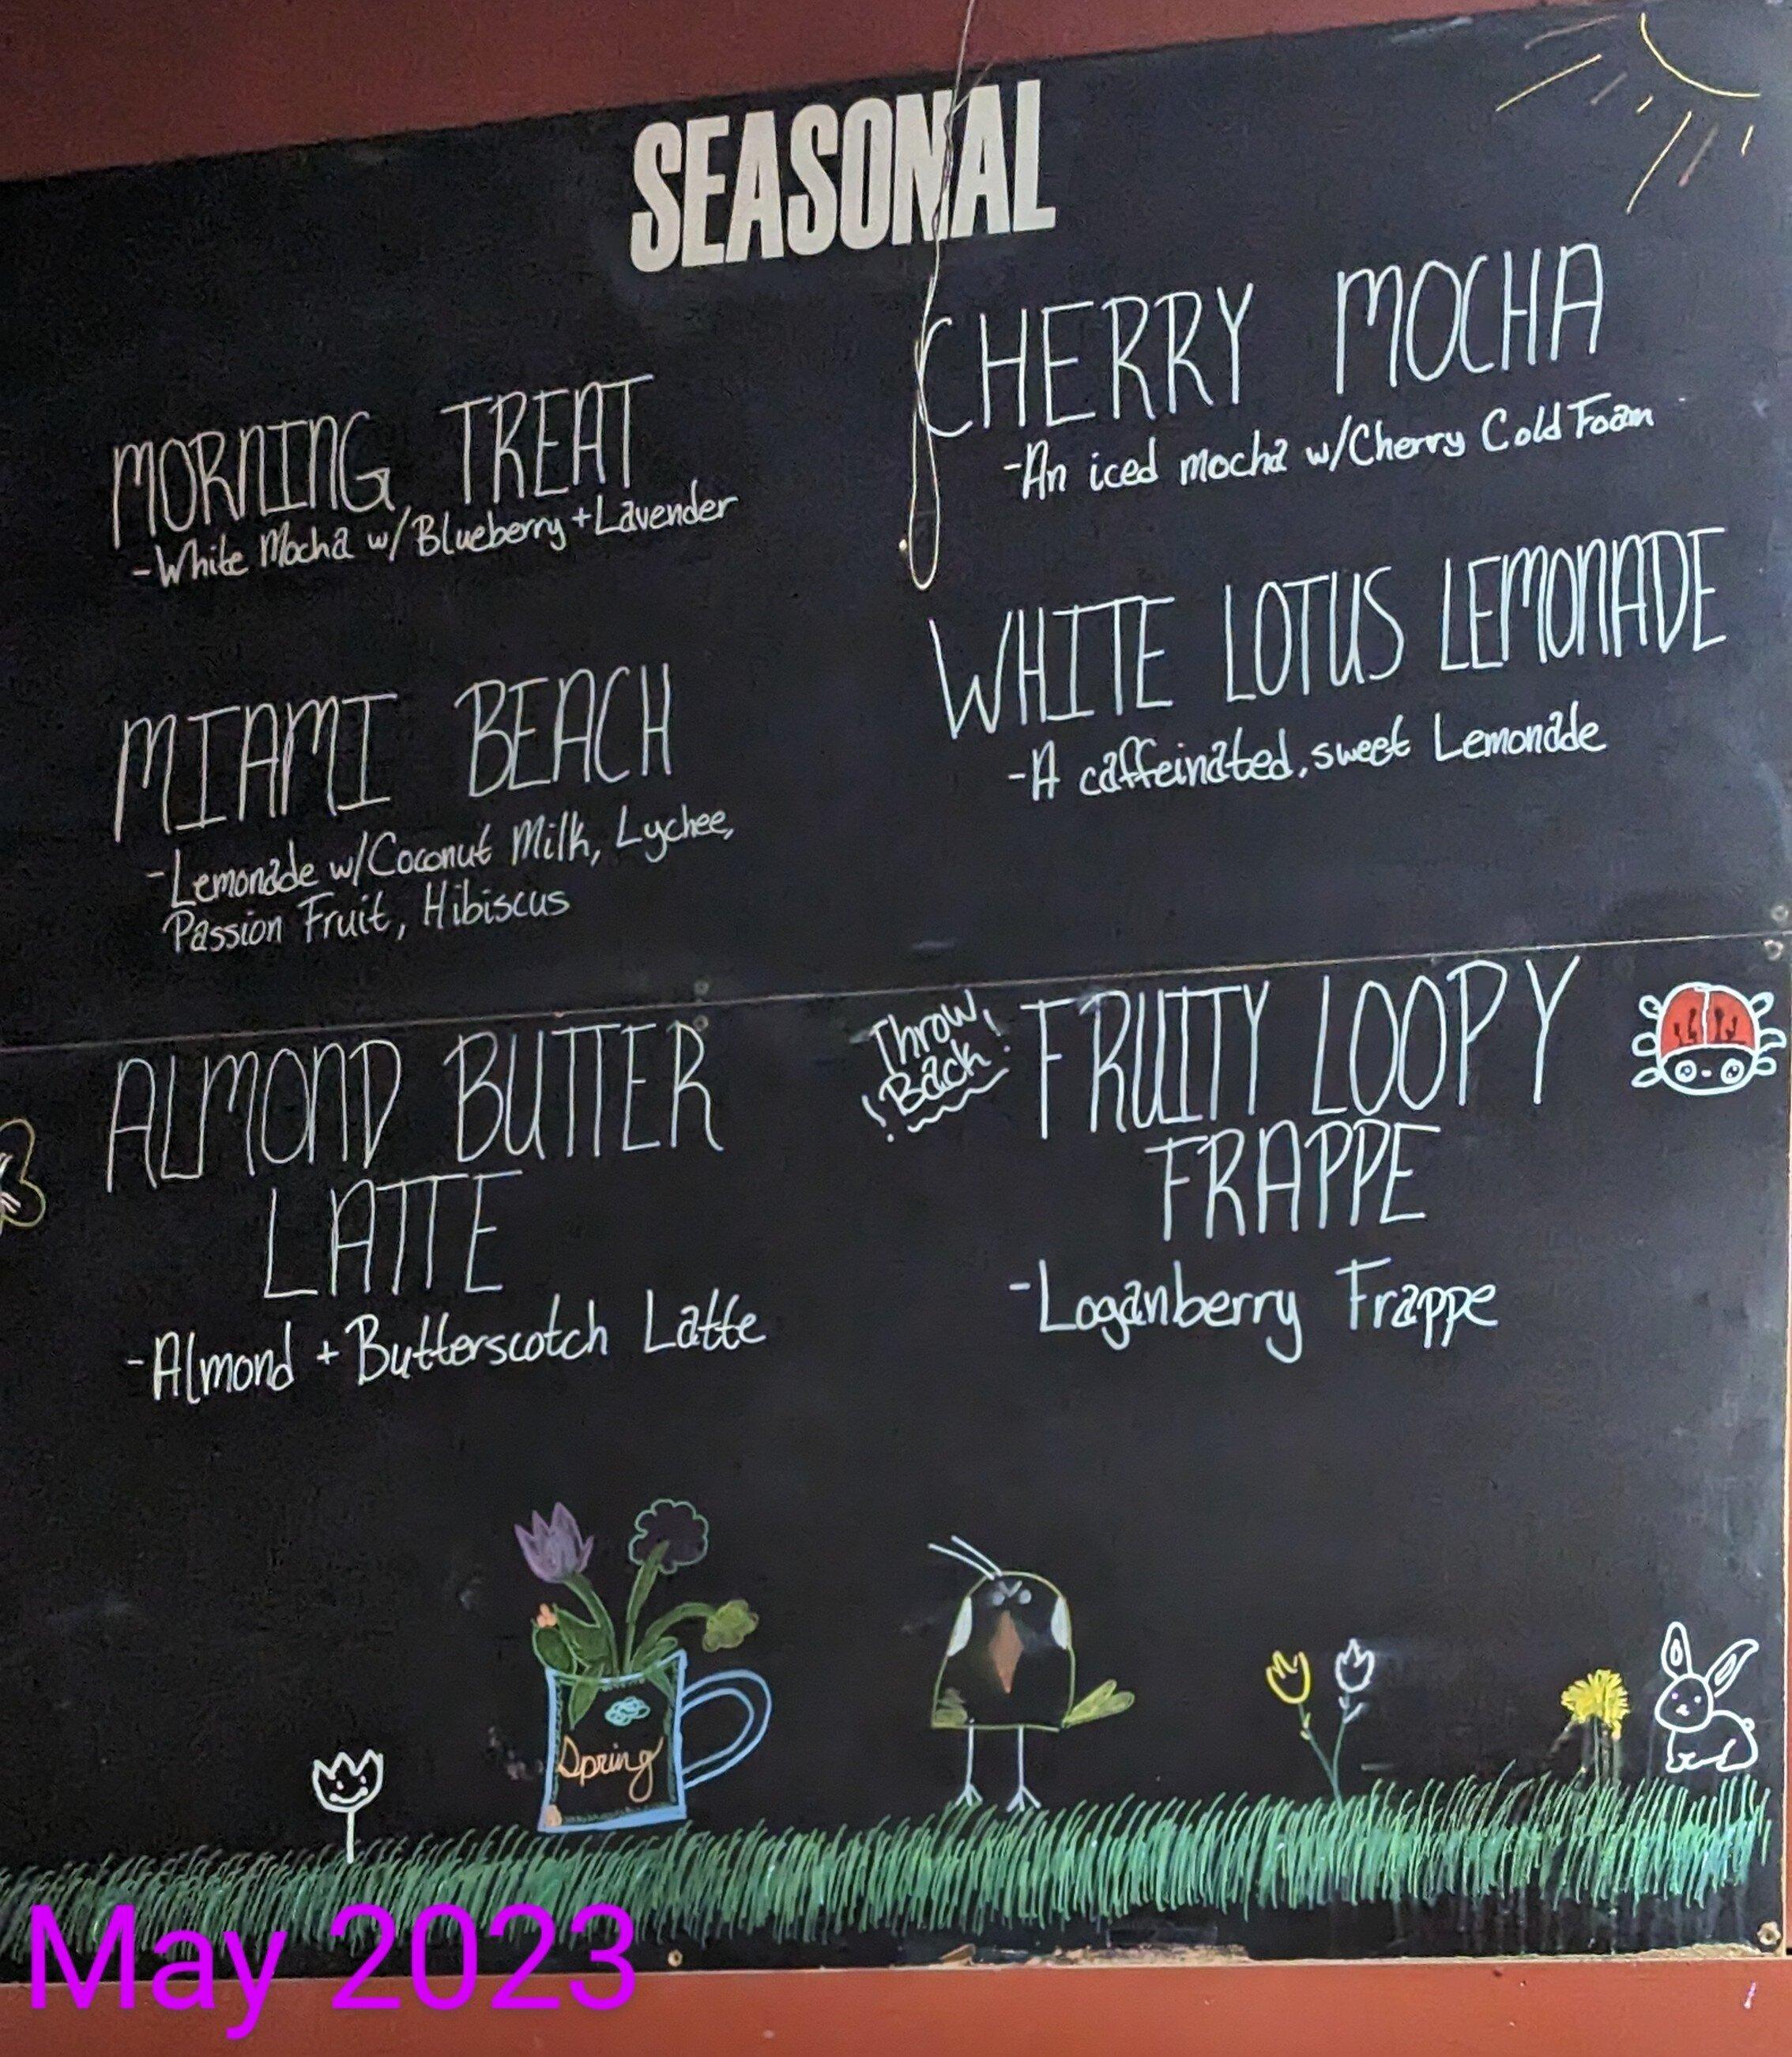 SEASONAL
MORNING TREAT
-White Mocha w/Blueberry+Lavender
MIAMI BEACH
-Lemonade w/Coconut Milk, Lychee,
Passion Fruit, Hibiscus
ALMOND BUTTER
LATTE
-Almond + Butterscotch Latte
CHERRY MOCHA
-An iced mocha w/Cherry Cold Foam
WHITE LOTUS LEMONADE
-A caffeinated, sweet Lemonade
Throw
Back!
FRUITY LOOPY
FRAPPE
-Loganberry Frappe
Spring
May 2023